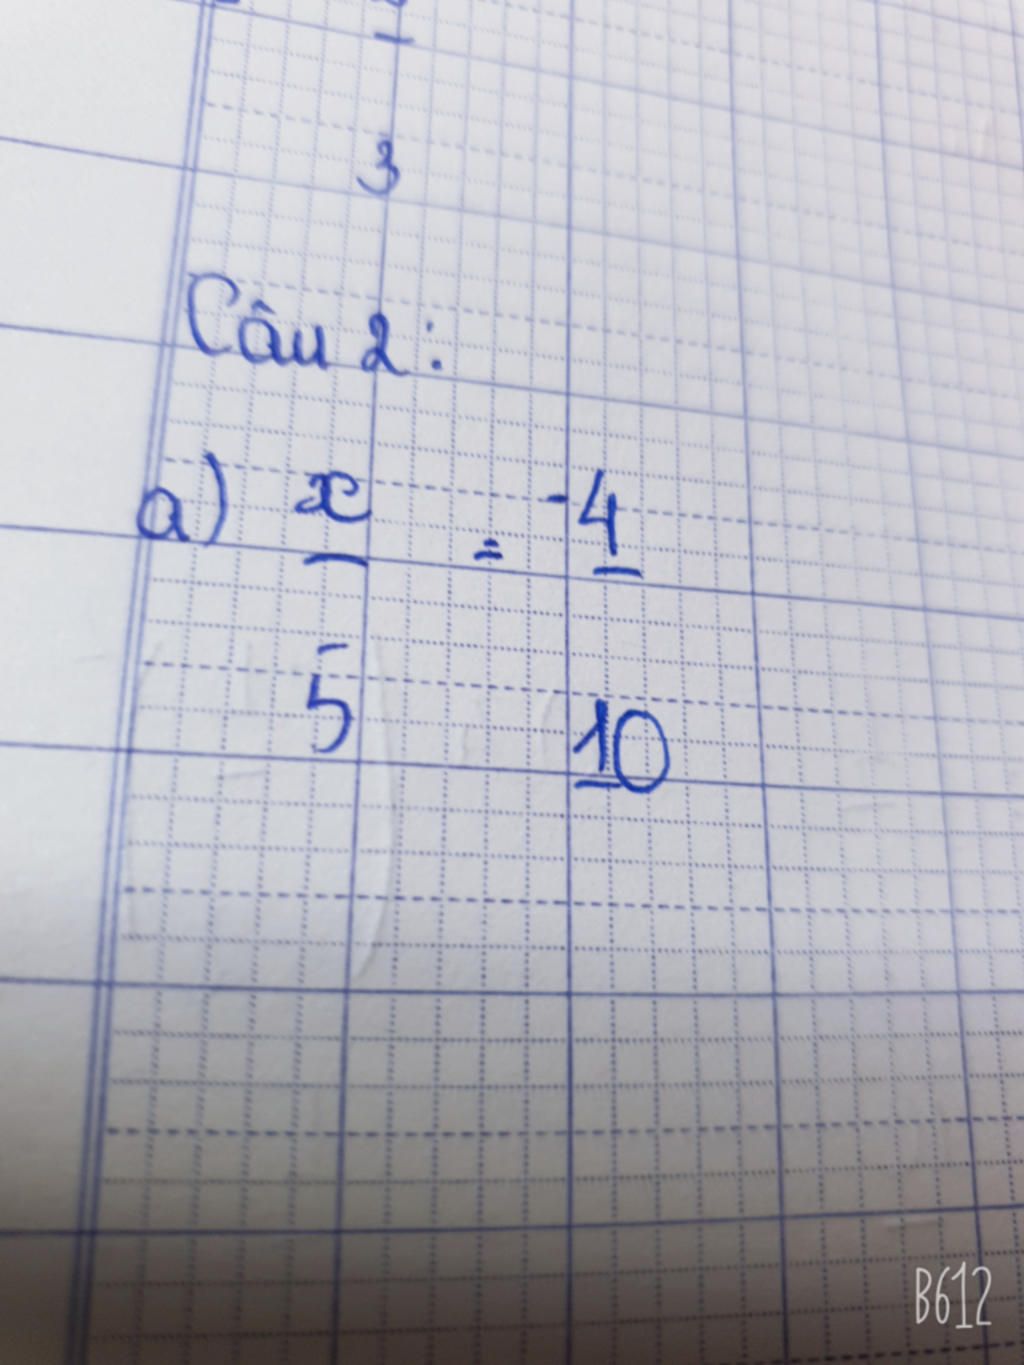 3
Câu 2:
a) x/5 = -4/10
B612